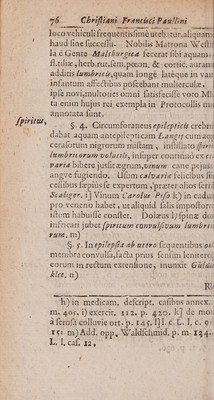 76 Christiani Francisci Paullini
loco vehiculi frequentissimè utebatur, aliquam
haud sine successu. Nobilis Matrona Westf
la è Gente Malsburgica fecerat sibi aquam
stiliæ, herb. rut. sem. pœon. & cortic. auran
additis lumbricis, quam longè latèque in vari
infantum affectibus poscebant mulierculæ.
ipse novi, multoties omni satisfecisse voto Mi
ta enim hujus rei exempla in Protocollis m
annotata sunt.
spiritus, §. 4. Circumforaneus epilepticis crebri
dabat aquam antepilepticam Langei cum aqu
cerasorum nigrorum mistam, instillato spirit
lumbricorum volatili, insuper continuò ex
varia bibere jussit ægrum, vinum cane pejus
angve fugiendo. Usum calvariæ felicibus
cessibus sæpius se expertum, præter alios scri
Scaliger. i) Vinum Carolus Piso k) in eodu
pro veneno habet, ut aliquid falli impostore
istum habuisse constet. Dolæus l) spinæ dor
infricari jubet spiritum convulsivum lumbri
rum. m)
§. 5. In epilepsia ab utero sequentibus
membra convulsa, facta prius sensim leniterq
eorum in rectum extensione, inunxit Gülde
klee, n)
h) in medicam. descript. casibus annex.
m. 405. i) exercit. 112. p. 420. k) de mo
à serosa colluvie ort. p. 145. l) l. c. L. 1. c. 9
151 m) Add. opp. Waldschmid. p. m. 134.
L. l. cas. 12.